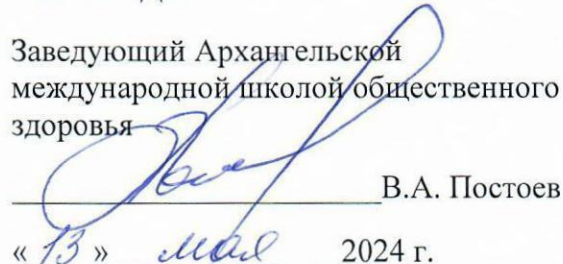 Заведующий Архангельской
международной школой общественного
здоровья
В.А. Постоев
« 13 » мая 2024 г.